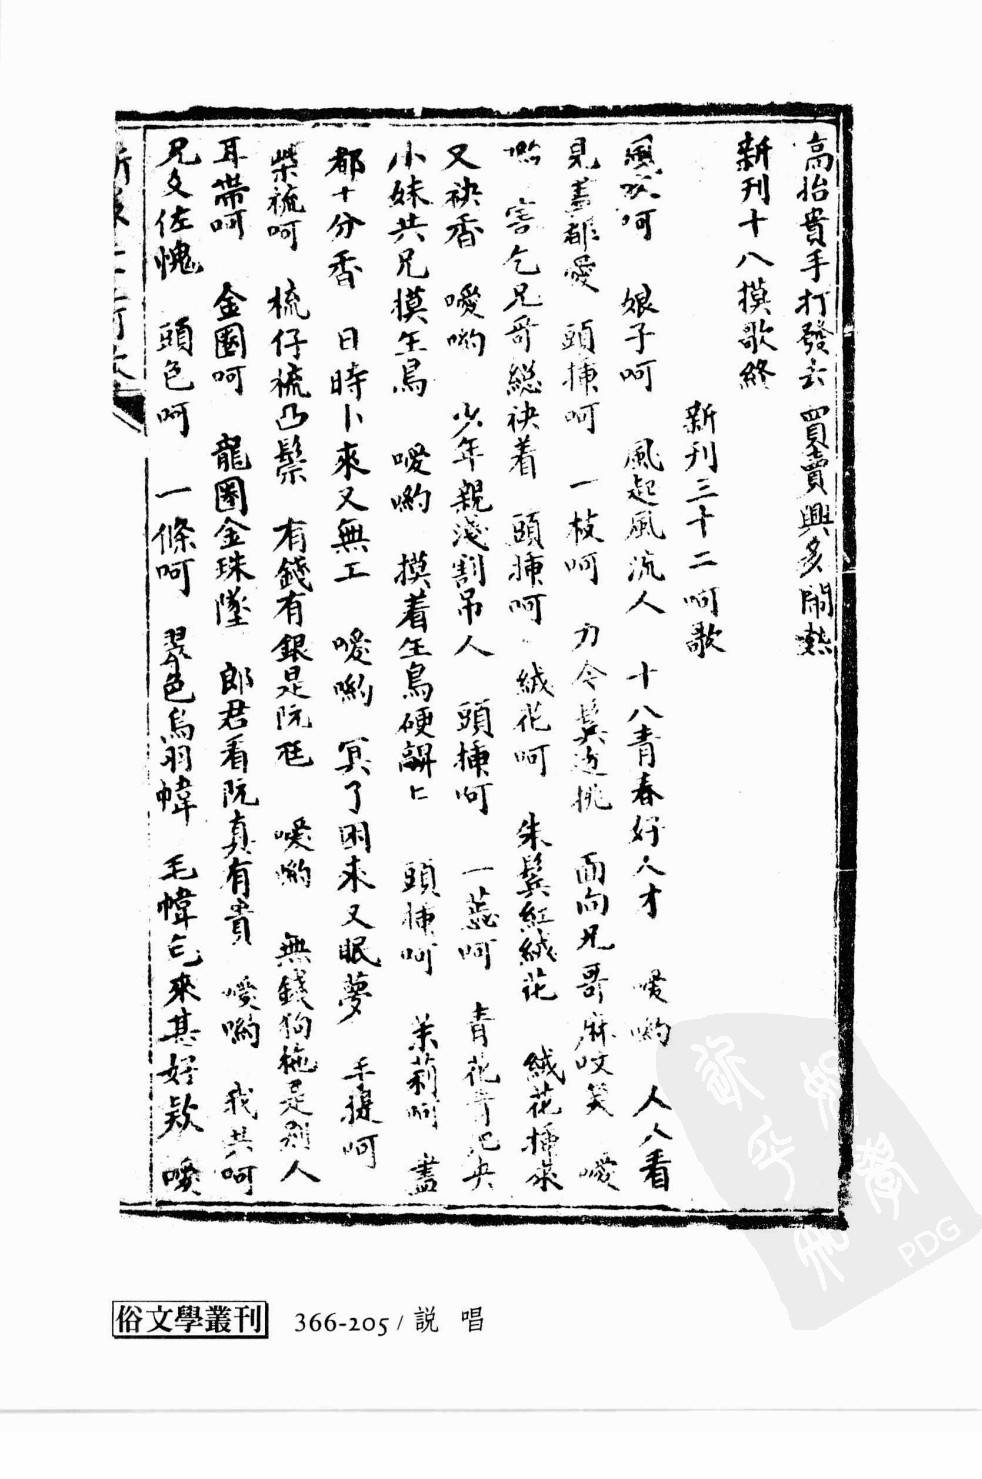 高抬貴手打發去 買賣興多鬧熱
新刊十八摸歌終
新刊三十二呵歌
風吹呵 娘子呵 風起風流人 十八青春好人才 噯喲 人人看
見盡都愛 頭揷呵 一枝呵 力令鬓边挑 面向兄哥麻呅笑 噯
喲 害乞兄哥総袂着 頭揷呵 絨花呵 朱鬓紅絨花 絨花揷來
又袂香 噯喲 少年親淺割吊人 頭揷呵 一蕊呵 青花
小妹共兄摸生鳥 噯喲 摸着生鳥硬 頭揷呵 茉莉呵 盡
都十分香 日時卜來又無工 噯喲 冥了困來又眠夢 手提呵
柴梳呵 梳仔梳凸鬃 有錢有銀是阮尫 噯喲 無錢狗拖是别人
耳帶呵 金圈呵 龍圈金珠墜 郎君看阮真有貴 噯喲 我共呵
兄文佐愧 頭色呵 一條呵 色烏羽幃 毛幃乞來甚好欵 噯
俗文學叢刊 366-205 / 説 唱
PDG